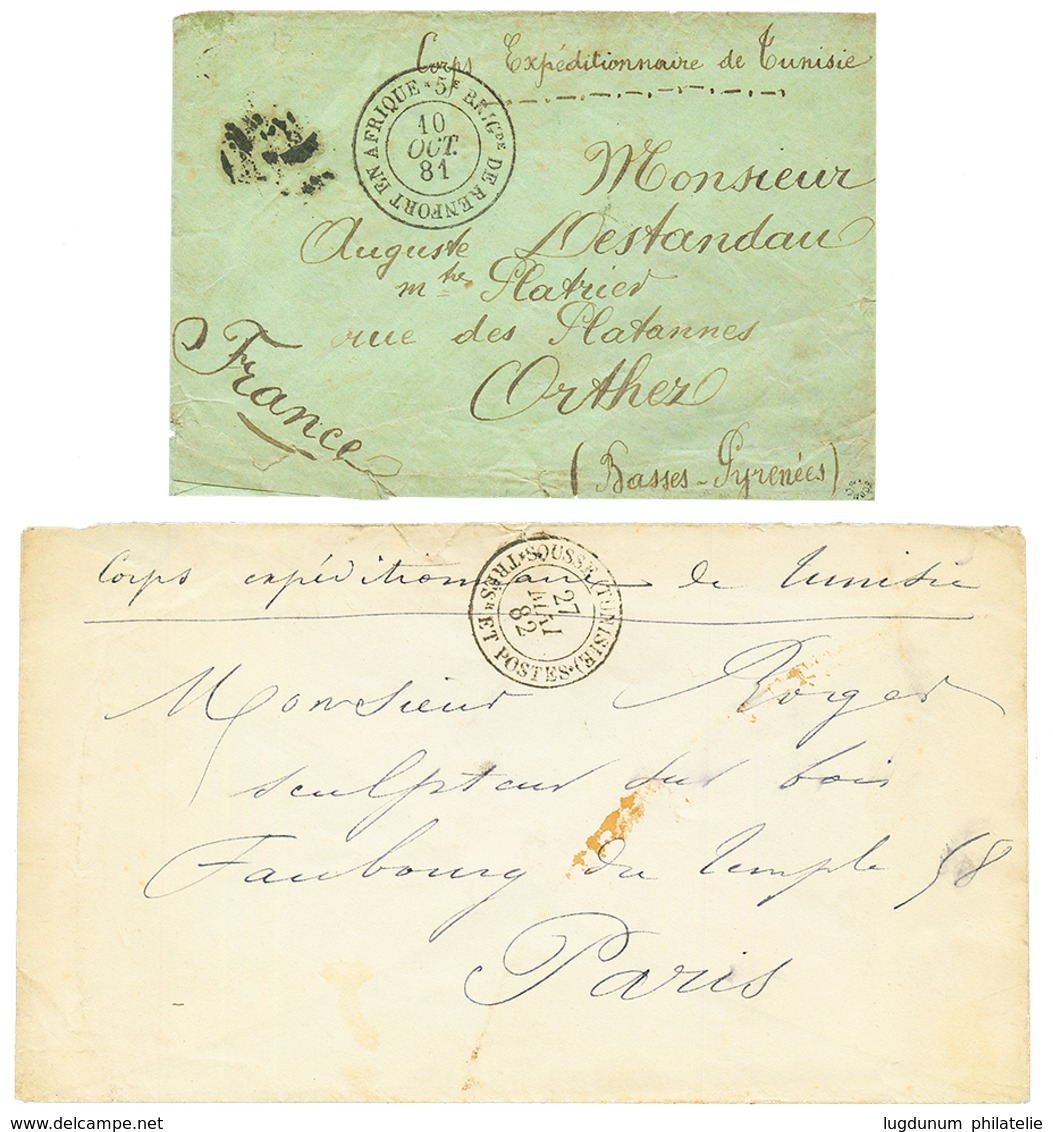 Corps Expéditionnaire de Tunisie
5E BRIGDE DE RENFORT EN AFRIQUE
10
OCT.
81
Monsieur
Auguste Lestandau
mtre Platrier
rue des Platannes
Orthez
France
(Basses-Pyrenées)
Corps expéditionnaire de Tunisie
TRÉS.R ET POSTES. SOUSSE (TUNISIE)
27
MAI
82
Monsieur Roger
sculpteur sur bois
Faubourg du Temple 58
Paris
www.delcampe.net
lugdunum philatelie